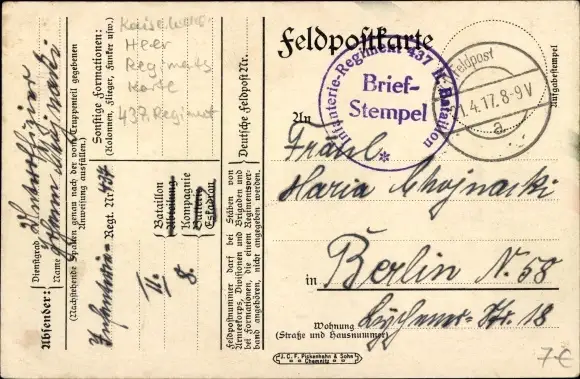 Feldpostkarte
Infanterie-Regiment 437 II. Bataillon
Brief-
Stempel
Feldpost
1.4.17. 8-9V
a
Aufgabestempel
An
Fräul.
Maria Chojnacki
in Berlin N. 58
Wohnung
(Straße und Hausnummer)
Lychener-Str. 18
7-€
J. C. F. Pickenhahn & Sohn
Chemnitz
Absender:
Dienstgrad
Name
(Nachstehende Spalten genau nach der vom Truppenteil gegebenen
Anweisung ausfüllen.)
Infanterie- Regt. Nr. 437
Sonstige Formationen:
(Kolonnen, Flieger, Funker usw.)
Heer
Regimets
Karte
437. Regiment
Bataillon
Abteilung
II.
Kompagnie
Batterie
Eskadron
8.
Deutsche Feldpost Nr.
Feldpostnummer darf bei Stäben von
Armeekorps, Divisionen und Brigaden und
bei Formationen, die einem Regimentsver-
band angehören, nicht angegeben werden.